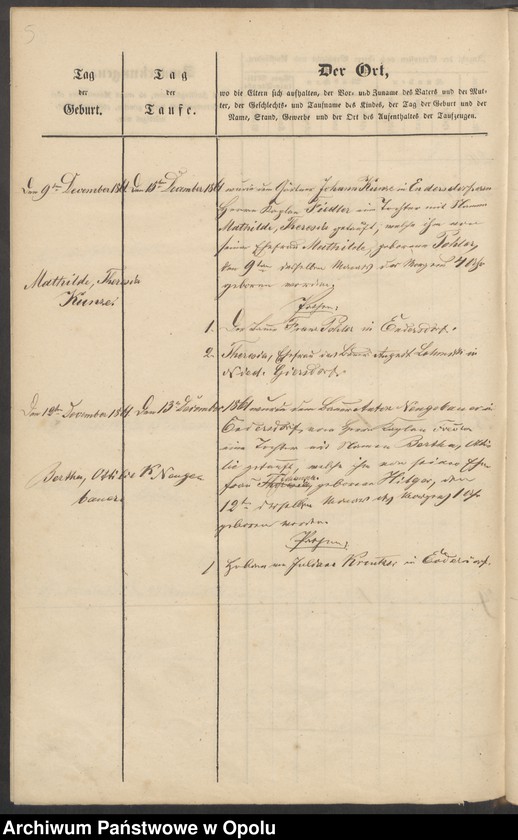 5
Tag
der
Geburt.
Tag
der
Taufe.
Der Ort,
wo die Eltern sich aufhalten, der Vor- und Zuname des Vaters und der Mut-
ter, der Geschlechts- und Taufname des Kindes, der Tag der Geburt und der
Name, Stand, Gewerbe und der Ort des Aufenthaltes der Taufzeugen.
Den 9ten December 1861 Den 15ten December 1861 wurde dem Gärtner Johann Kunze in Endersdorf vom
Herrn Kaplan Fiedler eine Tochter mit Namen
Mathilde, Theresia getauft, welche ihm von
seiner Ehefrau Mathilde, geborene Pohler,
den 9ten desselben Monats des Morgens 4 Uhr
geboren worden.
Mathilde, Theresia
Kunze
Pathen:
1. Der Bauer Franz Pohler in Endersdorf.
2. Theresia, Ehefrau des August in
Nied. Giersdorf.
Den 12ten December 1861 Den 13ten December 1861 wurde dem Bauer Anton Neugebauer in
Endersdorf, vom Herrn Kaplan
eine Tochter mit Namen Bertha, Otti-
lie getauft, welche ihm von seiner Ehe-
frau geborene Hitger, den
12ten desselben Monats des Morgens 1 Uhr
geboren worden.
Bertha, Ottilie Neuge
bauer
Pathen:
1 Juliane Kreutzer in Endersdorf.
Archiwum Państwowe w Opolu